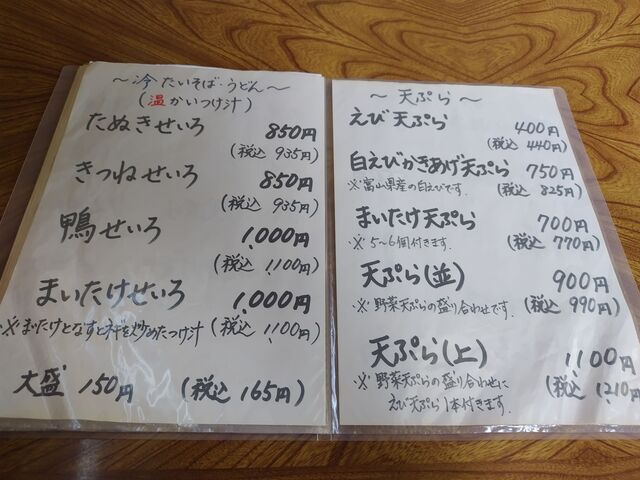 ～冷たいそば・うどん～
(温かいつけ汁)
たぬきせいろ 850円
(税込 935円)
きつねせいろ 850円
(税込 935円)
鴨せいろ 1,000円
(税込 1,100円)
まいたけせいろ 1,000円
※まいたけとなすとネギを炒めたつけ汁 (税込 1,100円)
大盛 150円 (税込 165円)
～天ぷら～
えび天ぷら 400円
(税込 440円)
白えびかきあげ天ぷら 750円
※富山県産の白えびです。 (税込 825円)
まいたけ天ぷら 700円
※5～6個付きます。 (税込 770円)
天ぷら(並) 900円
※野菜天ぷらの盛り合わせです。 (税込 990円)
天ぷら(上) 1,100円
※野菜天ぷらの盛り合わせに (税込 1,210円
えび天ぷら1本付きます。